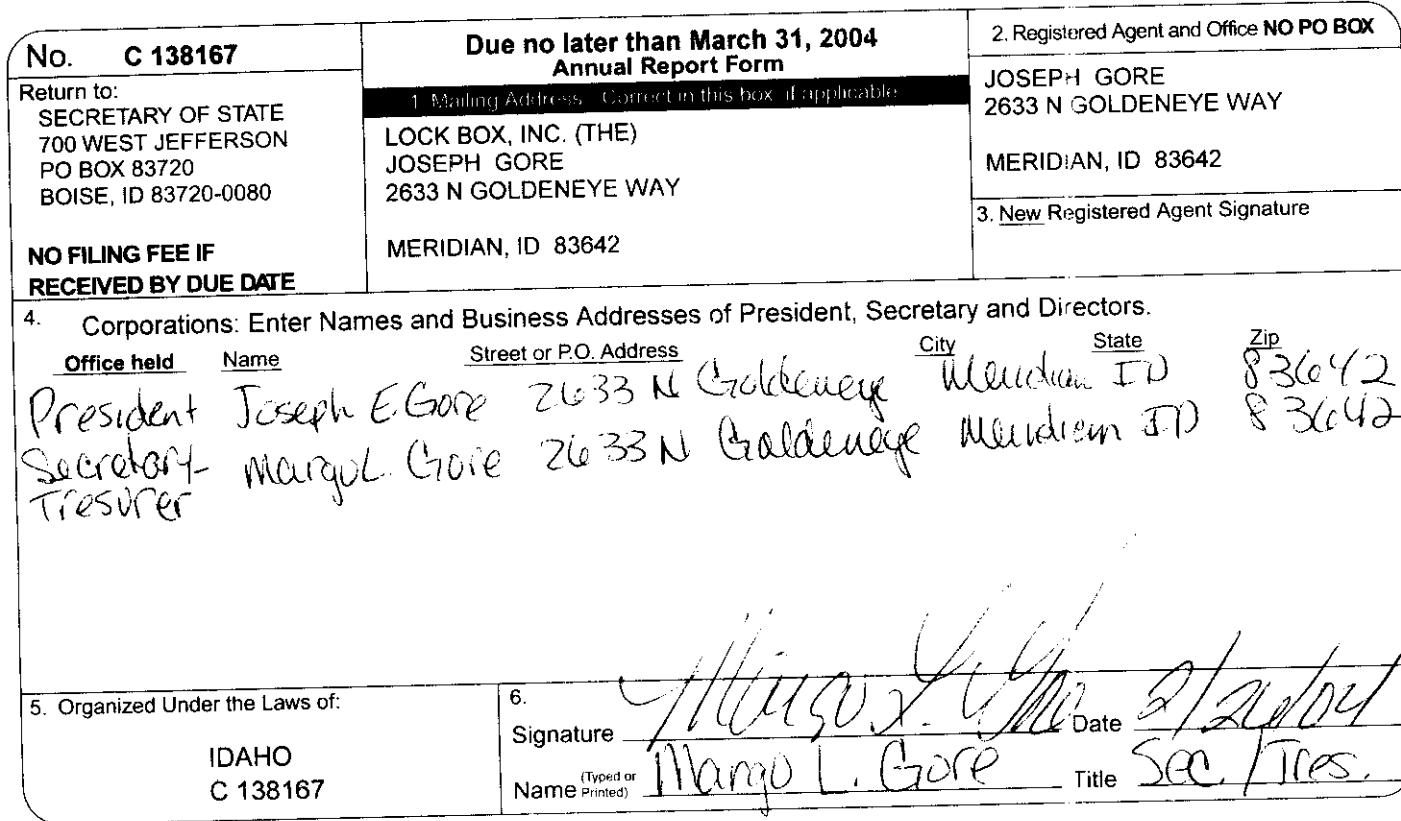 No. C 138167
Return to:
SECRETARY OF STATE
700 WEST JEFFERSON
PO BOX 83720
BOISE, ID 83720-0080
NO FILING FEE IF
RECEIVED BY DUE DATE
Due no later than March 31, 2004
Annual Report Form
1. Mailing Address. Correct in this box, if applicable
LOCK BOX, INC. (THE)
JOSEPH GORE
2633 N GOLDENEYE WAY
MERIDIAN, ID 83642
2. Registered Agent and Office NO PO BOX
JOSEPH GORE
2633 N GOLDENEYE WAY
MERIDIAN, ID 83642
3. New Registered Agent Signature
4. Corporations: Enter Names and Business Addresses of President, Secretary and Directors.
Office held Name Street or P.O. Address City State Zip
President Joseph E. Gore 2633 N Goldeneye Meridian ID 83642
Secretary- Margo L. Gore 2633 N Goldeneye Meridian ID 83642
Tresurer
5. Organized Under the Laws of:
IDAHO
C 138167
6.
Signature Margo L. Gore Date 2/26/04
Name (Typed or Printed) Margo L. Gore Title Sec. / Tres.